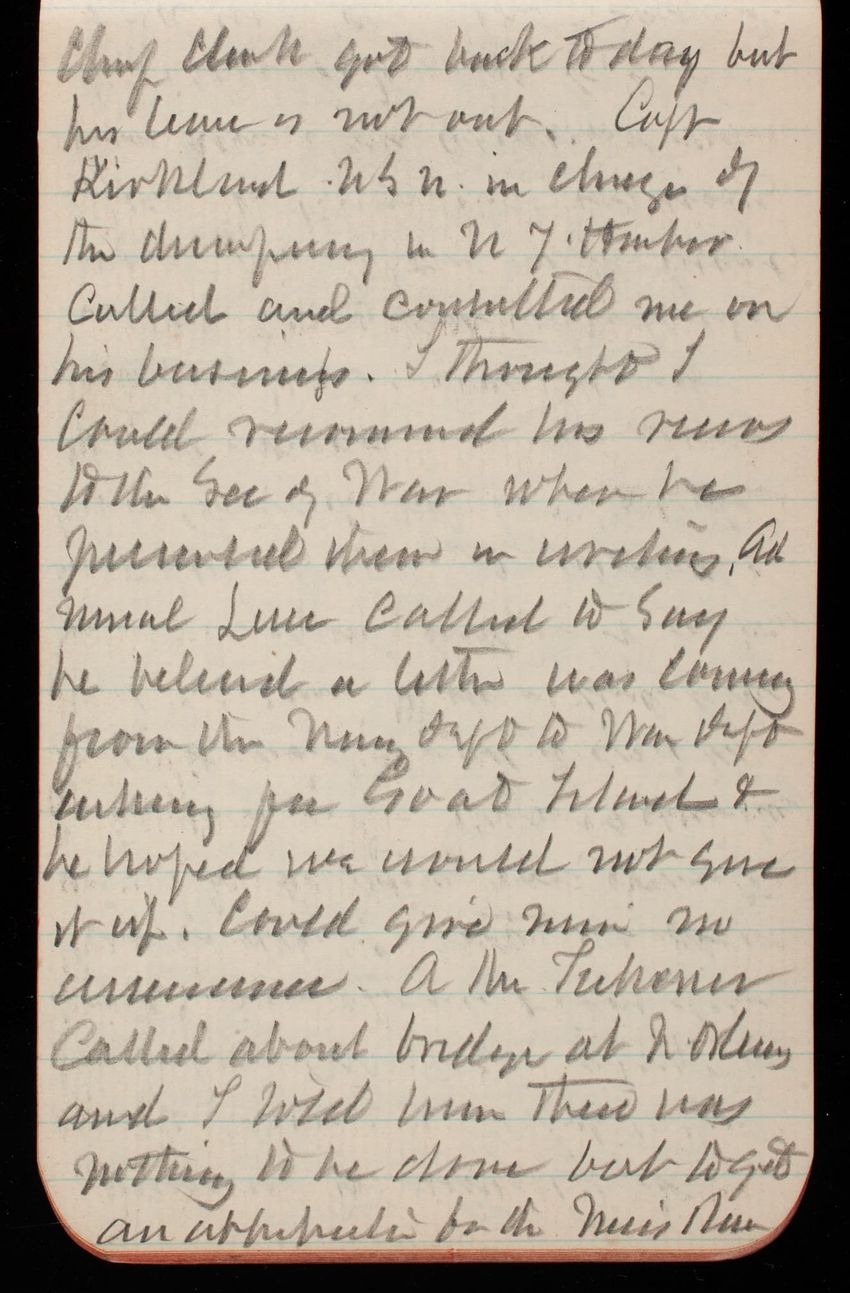 Chief Clerk got back to day but
his leave is not out. Capt
Kirkland U.S.N. in charge of
the dumping in N Y. Harbor
called and consulted me on
his business. I thought I
could recommend his views
to the Sec of War when he
presented them in writing. Ad
miral Luce called to say
he believed a letter was coming
from the Navy Dept to War Dept
asking for Goat Island &
he hoped we would not give
it up. Could give him no
assurance. A Mr
called about bridge at N Orleans
and I told him there was
nothing to be done but to get
an for the Miss River